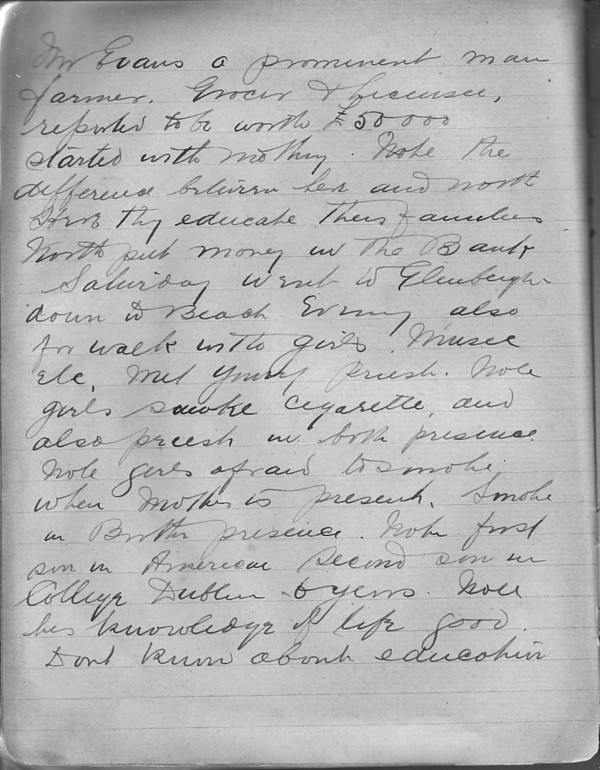 Mr Evans a prominent man
farmer. Grocer & Licensee,
reported to be worth £50000
started with nothing. Note the
difference between here and north
Here they educate their families
North put money in the Bank
Saturday went to Glenbeigh
down to Beach Evening also
for walk with girls. Music
etc. Met young Priest. Note
girls smoke cigarette, and
also priest in both presence
Note girls afraid to smoke
when Mother is present. Smoke
in Brother presence. Note first
son in American second son in
College Dublin 6 years. Note
his knowledge of life good
Dont know about education